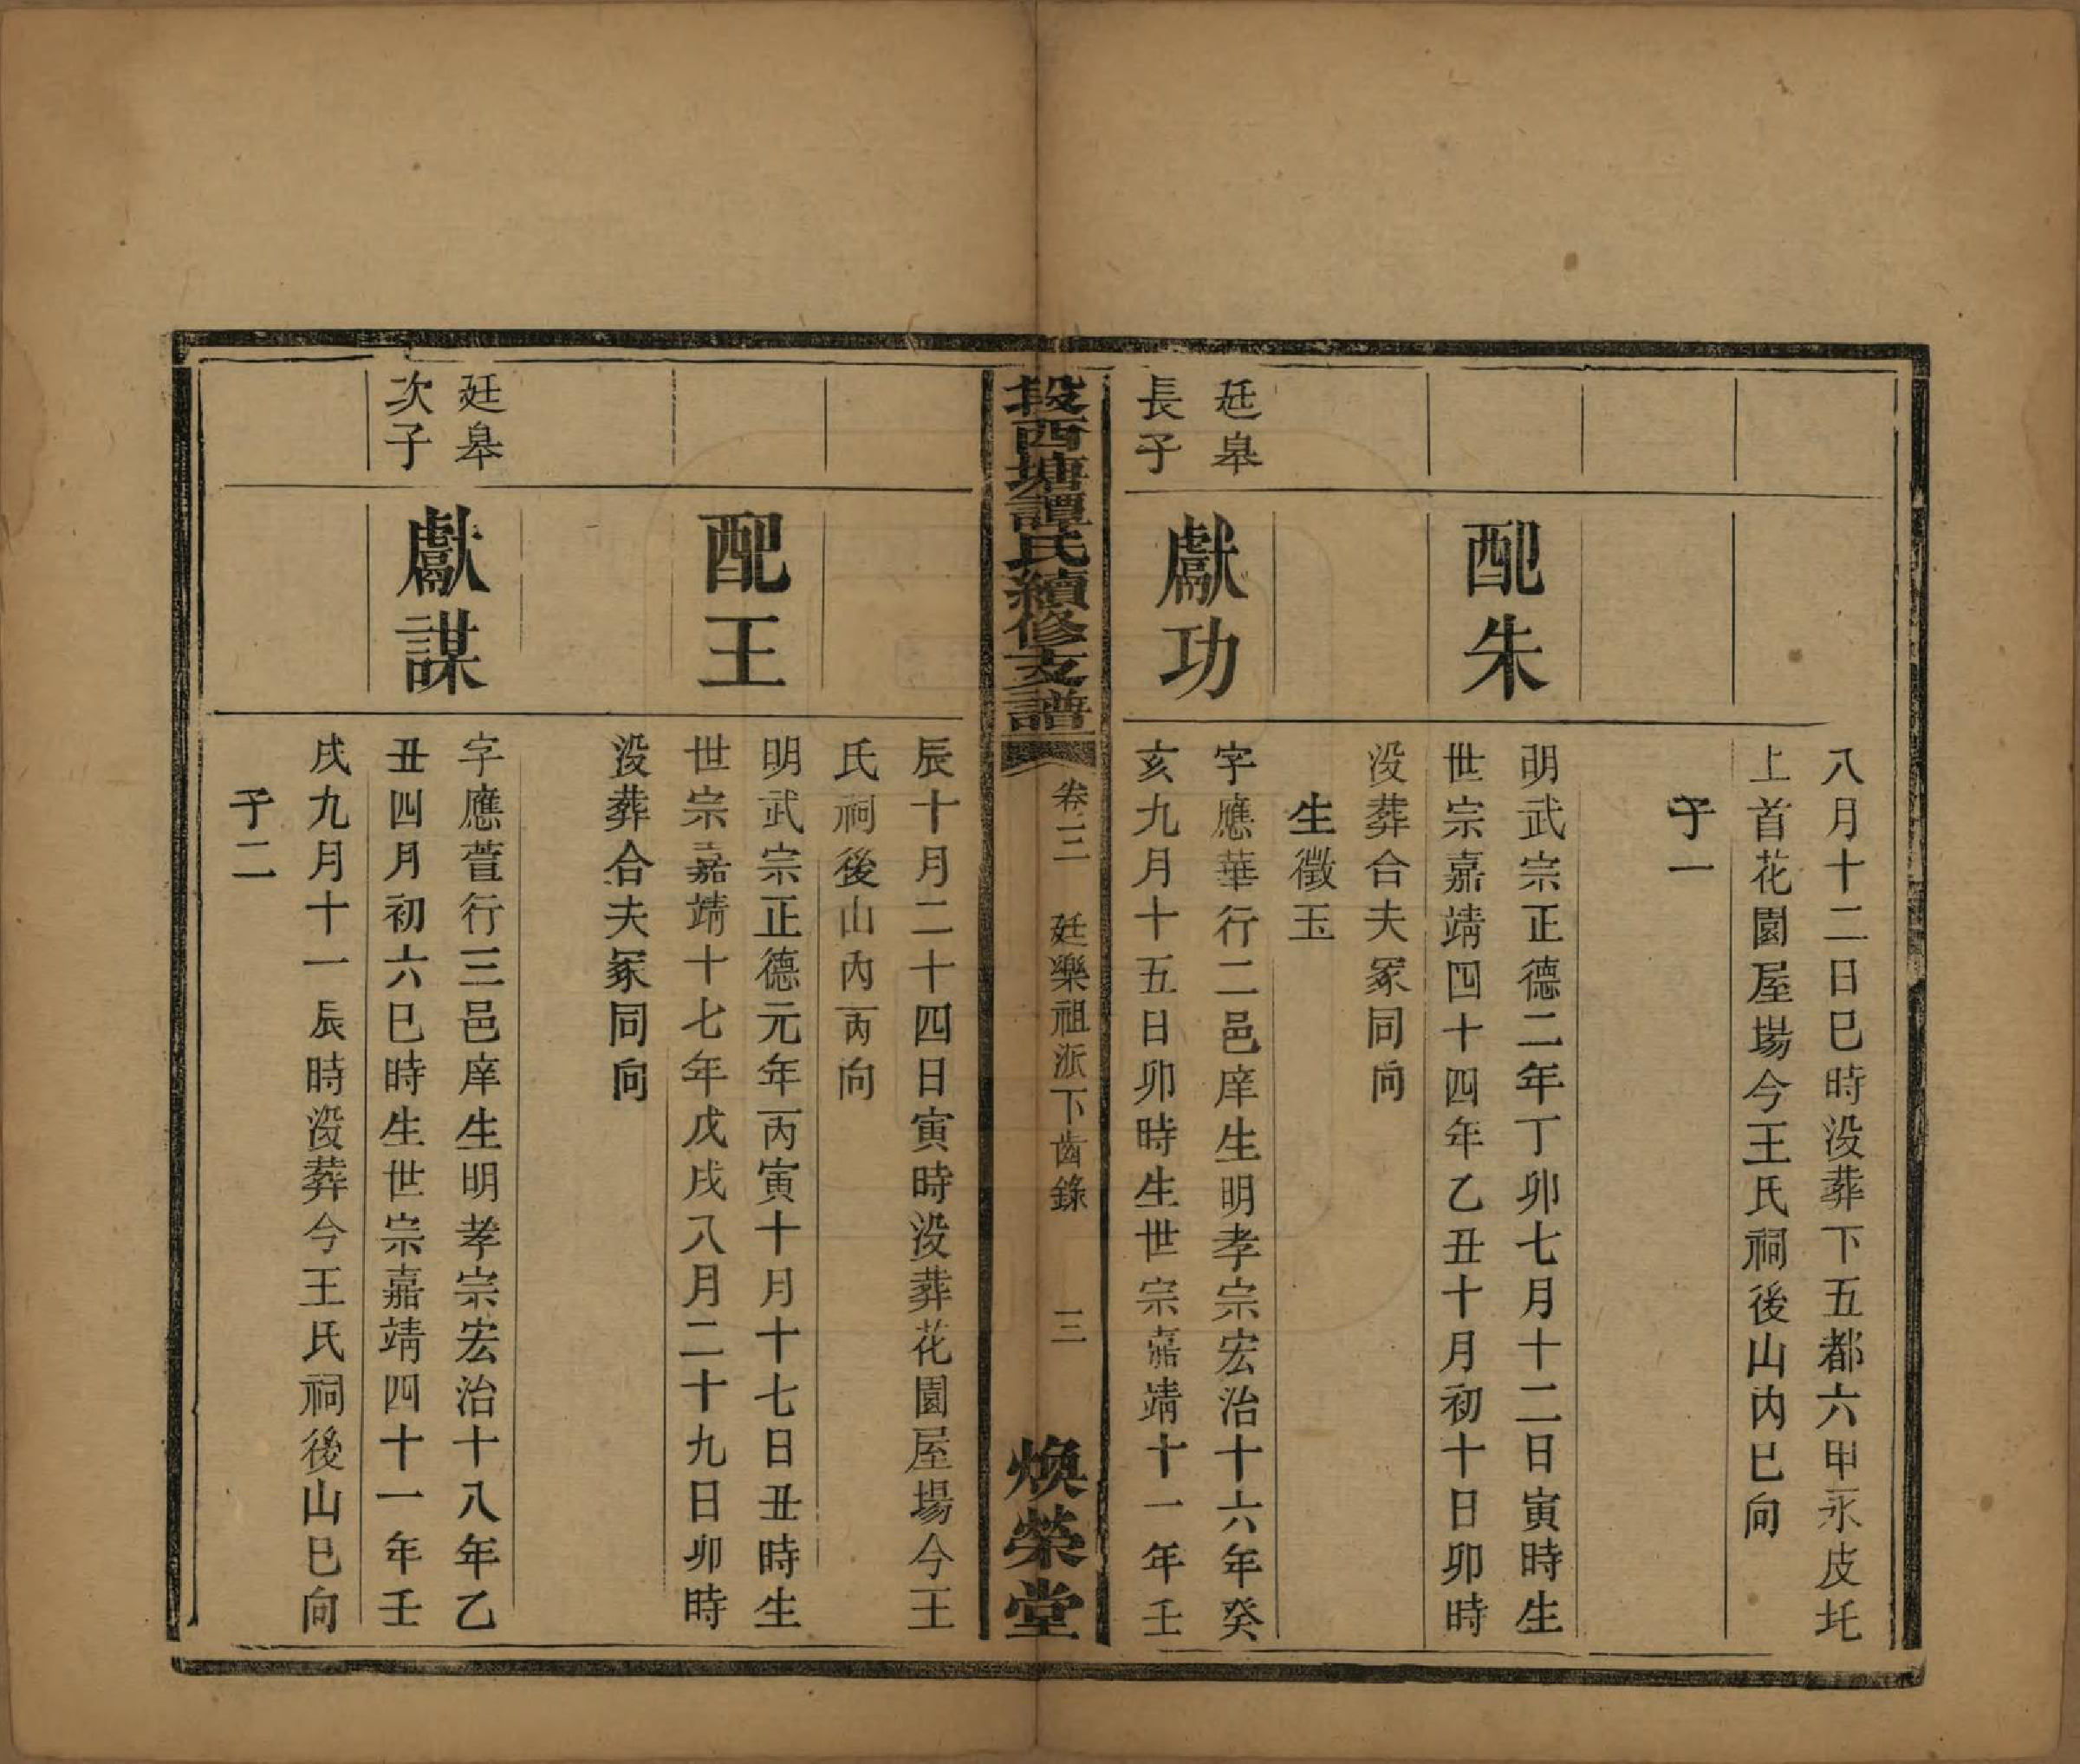 八月十二日巳時没葬下五都六甲永皮圫
上首花園屋場今王氏祠後山内巳向
子一
配朱
明武宗正德二年丁卯七月十二日寅時生
世宗嘉靖四十四年乙丑十月初十日卯時
没葬合夫冢同向
生徵玉
廷皋
長子
獻功
字應華行二邑庠生明孝宗宏治十六年癸
亥九月十五日卯時生世宗嘉靖十一年壬
段西塘譚氏續修支譜
卷三
廷樂祖派下齒錄
三
煥榮堂
辰十月二十四日寅時没葬花園屋場今王
氏祠後山内丙向
配王
明武宗正德元年丙寅十月十七日丑時生
世宗嘉靖十七年戊戌八月二十九日卯時
没葬合夫冢同向
廷皋
次子
獻謀
字應萱行三邑庠生明孝宗宏治十八年乙
丑四月初六巳時生世宗嘉靖四十一年壬
戌九月十一辰時没葬今王氏祠後山巳向
子二